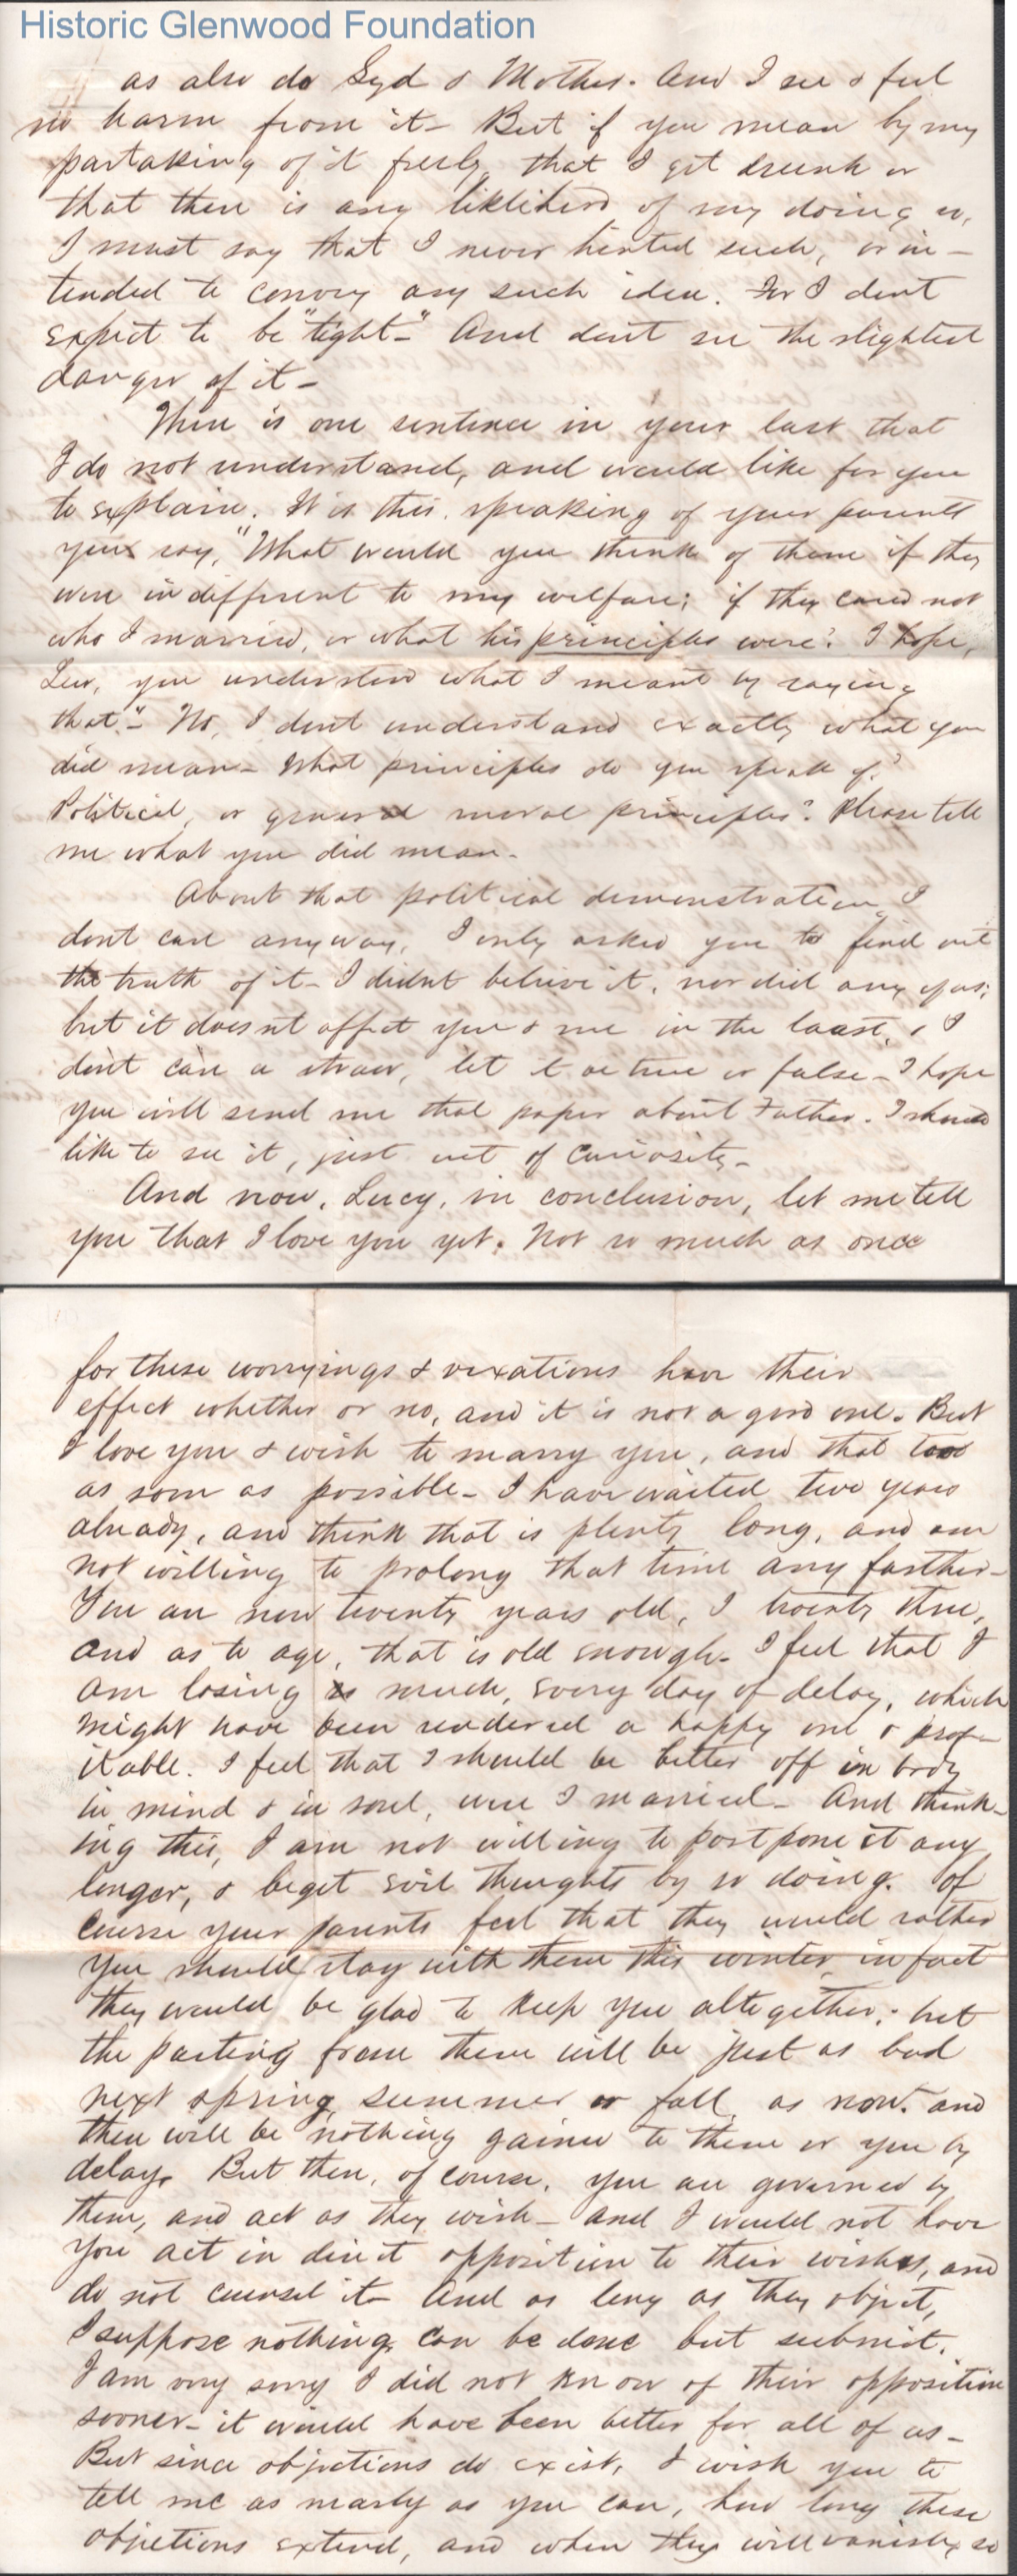 Historic Glenwood Foundation
as also do Syd & Mother. And I see & feel
no harm from it – But if you mean by my
partaking of it freely that I get drunk or
that there is any liklihood of my doing so,
I must say that I never hinted such, or in –
tended to convey any such idea. For I dont
expect to be "tight –" And dont see the slightest
danger of it –
There is one sentence in your last that
I do not understand, and would like for you
to explain. It is this. speaking of your parents
you say, "What would you think of them if they
were indifferent to my welfare; if they cared not
who I married, or what his principles were? I hope,
Lew, you understood what I meant by saying
that." – No, I dont understand exactly what you
did mean – What principles do you speak of?
Political, or general moral principles? Please tell
me what you did mean.
About that political demonstration, I
dont care anyway, I only asked you to find out
the truth of it – I didnt believe it, nor did any of us;
but it doesnt affect you & me in the least, & I
dont care a straw, let it be true or false – I hope
you will send me that paper about Father. I should
like to see it, just out of curiosity –
And now, Lucy, in conclusion, let me tell
you that I love you yet. Not so much as once
for these worryings & vexations have their
effect whether or no, and it is not a good one. But
I love you & wish to marry you, and that too
as soon as possible – I have waited two years
already, and think that is plenty long, and am
not willing to prolong that time any farther –
You are now twenty years old, I twenty three,
and as to age, that is old enough – I feel that I
am losing so much, every day of delay, which
might have been rendered a happy one & prof –
itable. I feel that I should be better off in body
in mind & in soul, were I married – And think –
ing this, I am not willing to postpone it any
longer, & beget evil thoughts by so doing. Of
course your parents feel that they would rather
you should stay with them this winter, in fact
they would be glad to keep you altogether; but
the parting from them will be just as bad
next spring, summer or fall, as now. and
there will be nothing gained to them or you by
delay. But then, of course, you are governed by
them, and act as they wish – And I would not have
you act in direct opposition to their wishes, and
do not counsel it – And as long as they object,
I suppose nothing can be done but submit.
I am very sorry I did not know of their opposition
sooner – it would have been better for all of us –
But since objections do exist, I wish you to
tell me as nearly as you can, how long these
objections extend, and when they will vanish, so